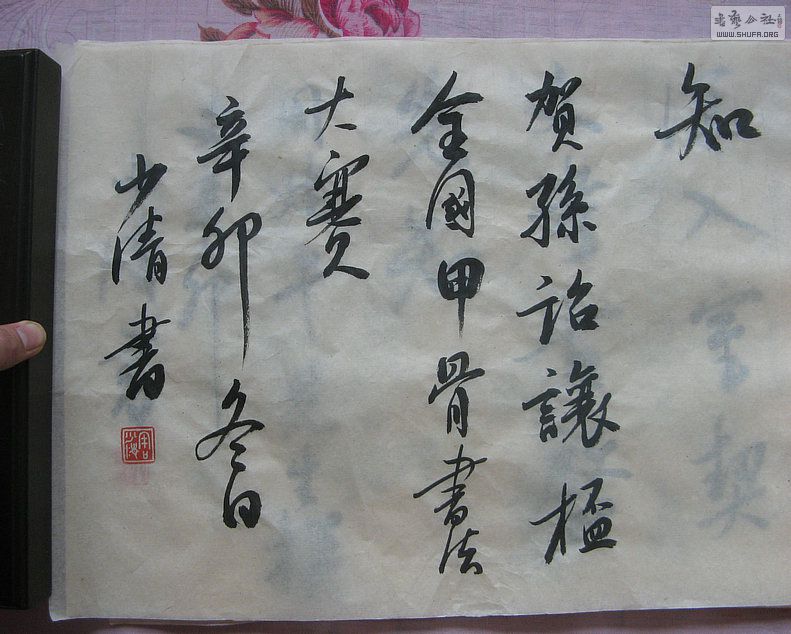 知
賀孫詒讓桮
全國甲骨書法
大賽
辛卯冬日
少清書
書藝公社
WWW.SHUFA.ORG